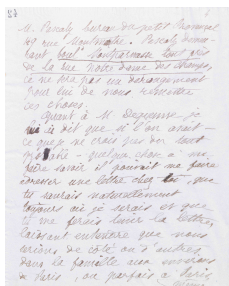 M. Pascal, bureau du petit
19 rue Montmartre. Pascal demeu-
rant boul. Montparnasse tout près
de la rue Notre Dame des Champs,
ce ne sera pas un dérangement
pour lui de nous remettre
ces choses.
Quant à M. je
lui ai dit que si l'on avait —
ce que je ne crois pas du tout
— quelque chose à me
faire savoir il pourrait me faire
adresser une lettre chez toi, que
tu saurais naturellement
toujours où je serais et que
tu me ferais tenir la lettre,
laissant entendre que nous
irions de côté ou d'autres
dans la famille aux environs
de Paris, ou parfois à Paris